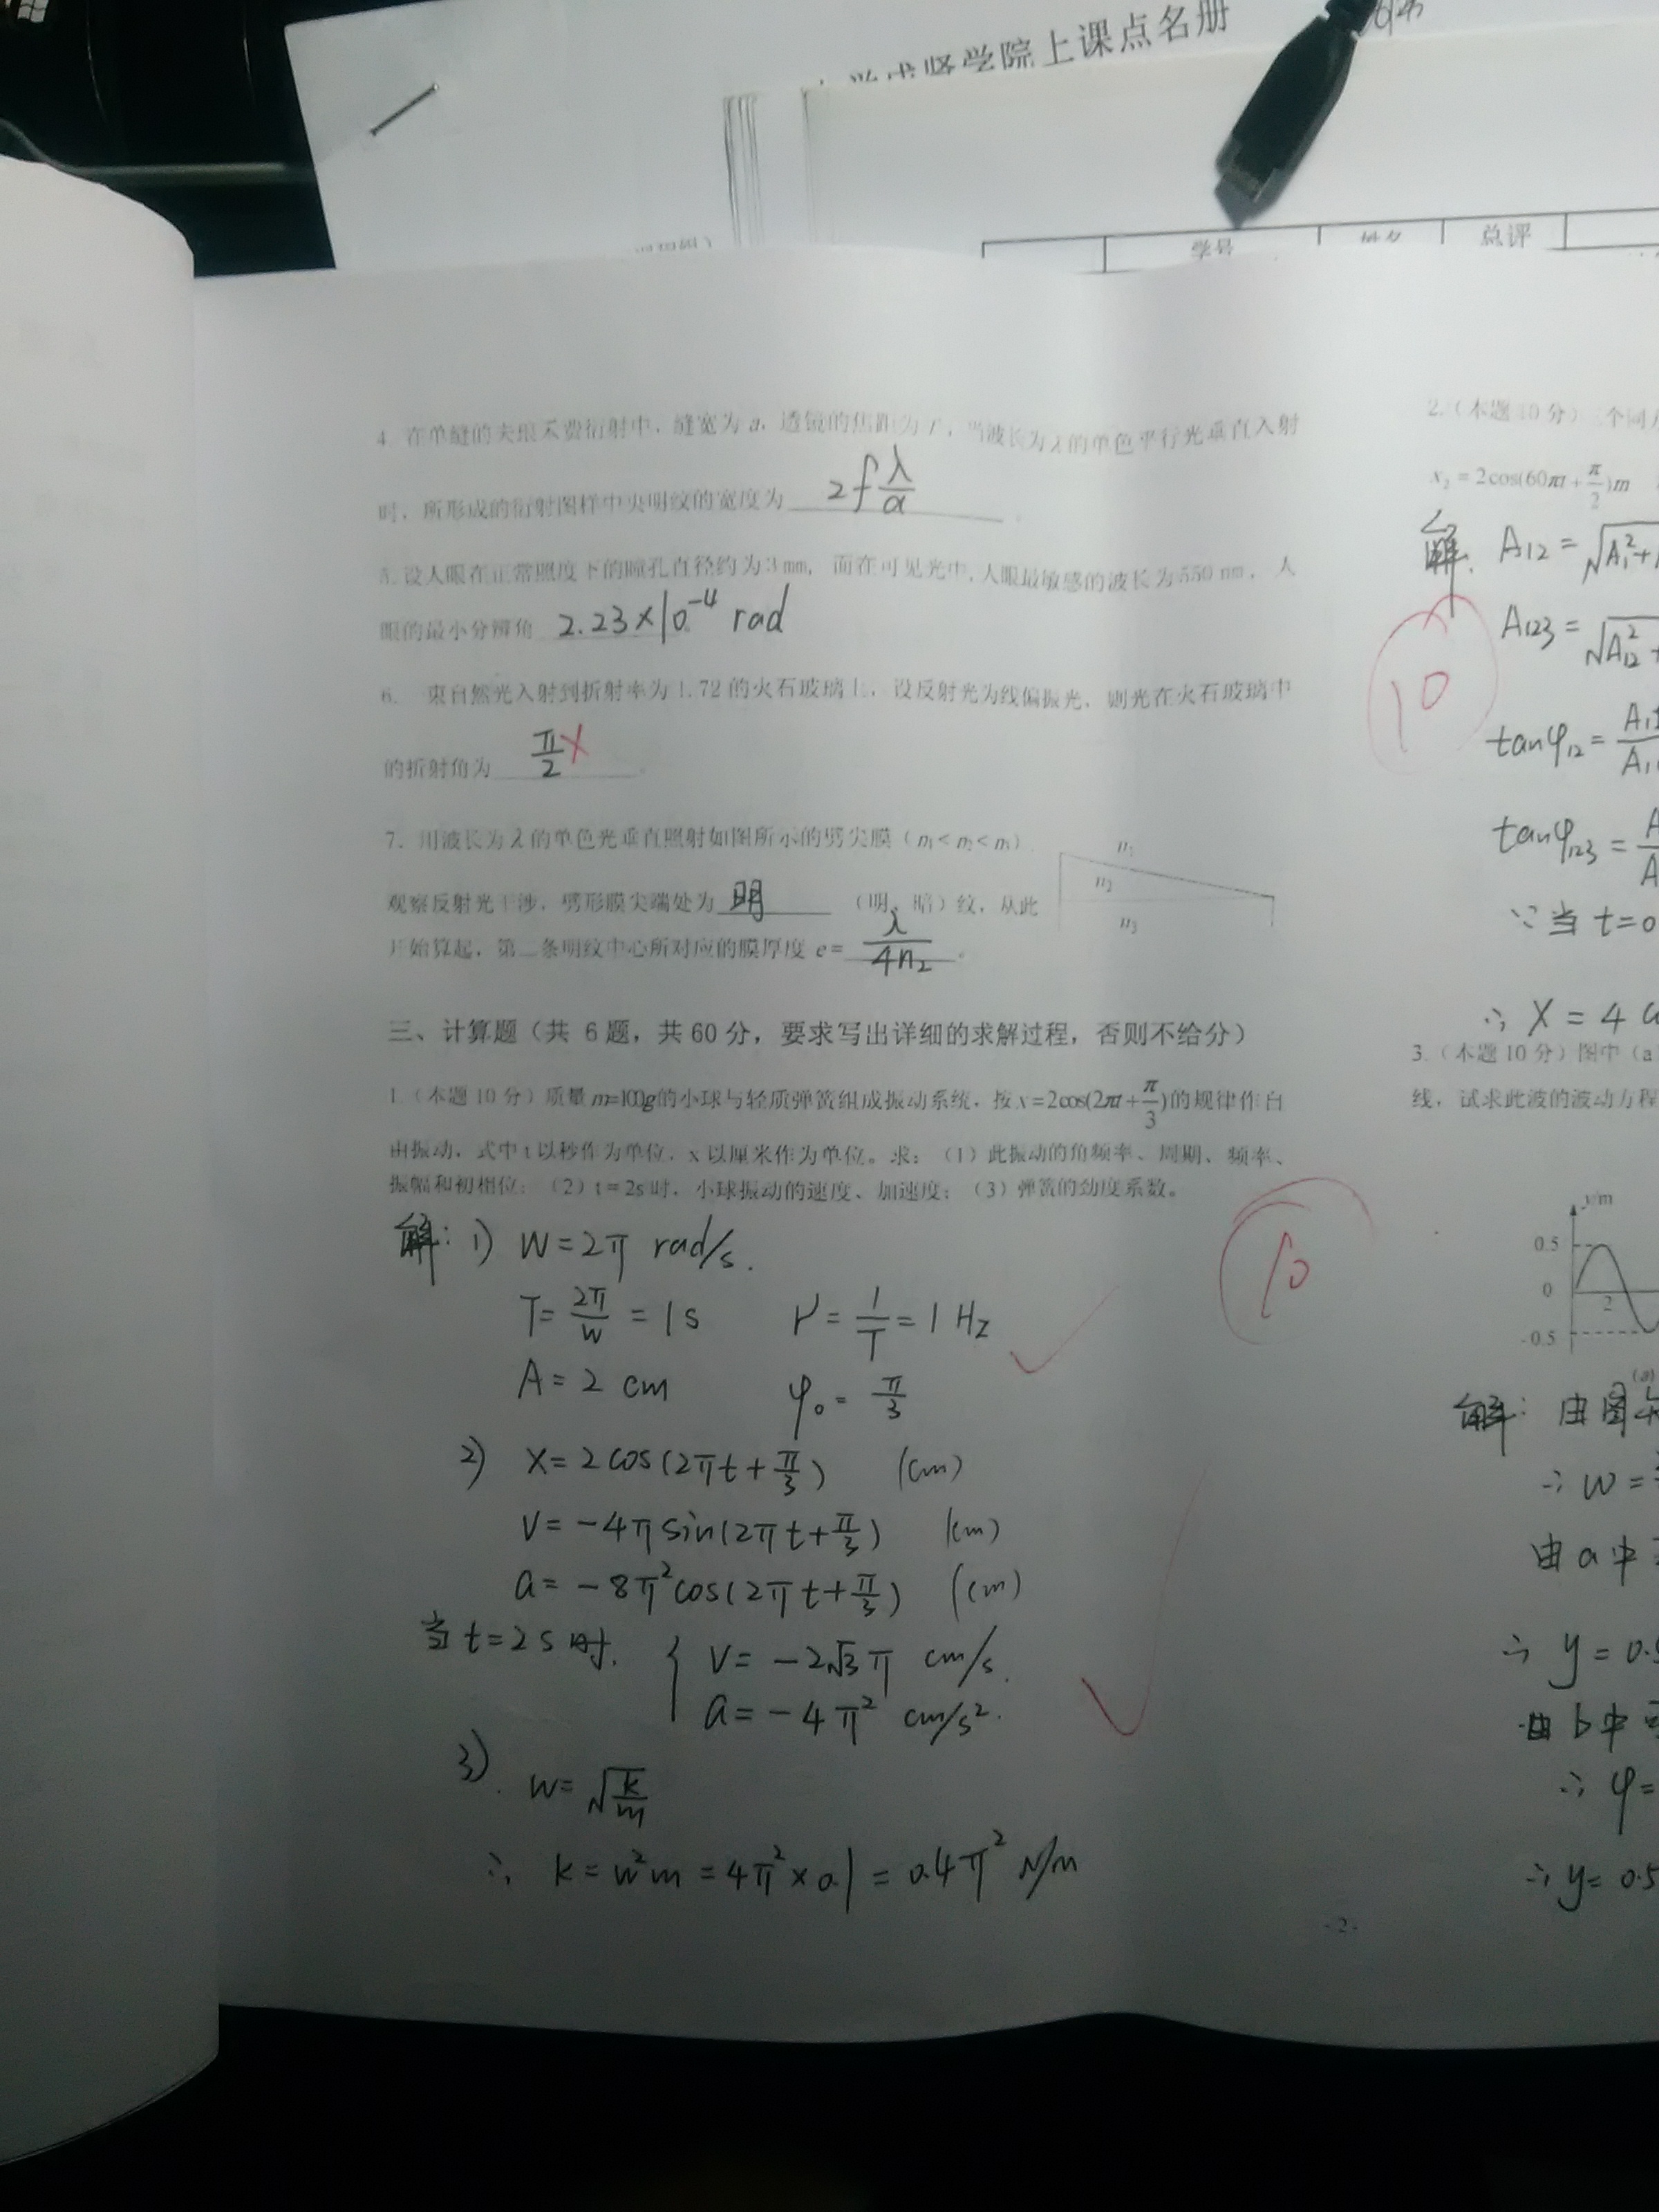 学院上课点名册
学号 姓名 总评
4. 在单缝的夫琅禾费衍射中，缝宽为 a，透镜的焦距为 f，当波长为λ的单色平行光垂直入射
时，所形成的衍射图样中央明纹的宽度为 2f λ/a 。
5. 设人眼在正常照度下的瞳孔直径约为3mm，而在可见光中，人眼最敏感的波长为550 nm，人
眼的最小分辨角 2.23×10⁻⁴ rad
6. 束自然光入射到折射率为 1.72 的火石玻璃上，设反射光为线偏振光，则光在火石玻璃中
的折射角为 π/2 × 。
7. 用波长为 λ 的单色光垂直照射如图所示的劈尖膜（n₁< n₂< n₃）
n₁
n₂
n₃
观察反射光干涉，劈形膜尖端处为 明 （明、暗）纹，从此
开始算起，第二条明纹中心所对应的膜厚度 e= λ/4n₂ 。
三、计算题（共 6 题，共 60 分，要求写出详细的求解过程，否则不给分）
1.（本题 10 分）质量 m=100g的小球与轻质弹簧组成振动系统，按 x=2cos(2πt+π/3)的规律作自
由振动，式中 t 以秒作为单位，x 以厘米作为单位。求：（1）此振动的角频率、周期、频率、
振幅和初相位；（2）t=2s 时，小球振动的速度、加速度；（3）弹簧的劲度系数。
10
解：1) W=2π rad/s.
T=2π/W=1s ν=1/T=1 Hz
A=2 cm φ₀=π/3
2) x=2cos(2πt+π/3) (cm)
V=-4πsin(2πt+π/3) (cm)
a=-8π²cos(2πt+π/3) (cm)
当 t=2s 时. { V=-2√3π cm/s.
a=-4π² cm/s².
3). w=√(k/m)
∴ k=w²m=4π²×0.1=0.4π² N/m
-2-
2.（本题 10 分）三个同
x₂=2cos(60πt+π/2)m
解. A₁₂=√A₁²+
10
A₁₂₃=√A₁₂²+
tanφ₁₂=
tanφ₁₂₃=
∵当 t=0
∴ X=4
3.（本题 10 分）图中（a
线，试求此波的波动方程
y/m
0.5
0
2
-0.5
(a)
解：由图
∴ W=
由 a 中
∴ y=0.5
由 b 中
∴ φ=
∴ y=0.5